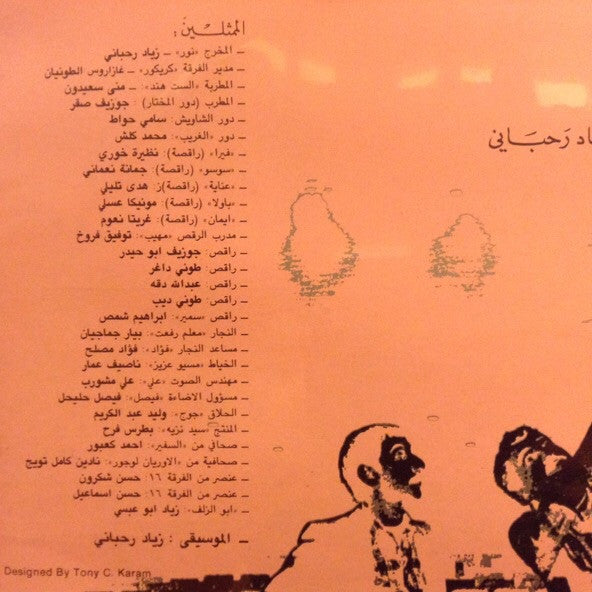 الممثلـــين :
– المخرج «نور» – زياد رحباني
– مدير الفرقة «كريكور» – غازاروس الطونيان
– المطربة «الست هند»: – منى سعيدون
– المطرب (دور المختار) : جوزيف صقر
– دور الشاويش: سامي حواط
– دور «الغريب»: محمد كلش
– «فيرا» (راقصة): نظيرة خوري
– «سوسو» (راقصة): جمانة نعماني
– «عناية» (راقصة)ز: هدى تليلي
– «باولا» (راقصة): مونيكا عسلي
– «ايمان» (راقصة): غريتا نعوم
– مدرب الرقص «مهيب»: توفيق فروخ
– راقص: جوزيف ابو حيدر
– راقص: طوني داغر
– راقص: عبدالله دقه
– راقص: طوني ديب
– راقص «سمير»: ابراهيم شمص
– النجار «معلم رفعت»: بيار جماجيان
– مساعد النجار «فؤاد»: فؤاد مصلح
– الخياط «مسيو عزيز»: ناصيف عمار
– مهندس الصوت «علي»: علي مشورب
– مسؤول الاضاءة «فيصل»: فيصل حليحل
– الحلاق «جوج»: وليد عبد الكريم
– المنتج «سيد نزيه»: بطرس فرح
– صحافي من «السفير»: احمد كعبور
– صحافية من «الاوريان لوجور»: نادين كامل تويج
– عنصر من الفرقة ١٦: حسن شكرون
– عنصر من الفرقة ١٦: حسن اسماعيل
– «ابو الزلف»: زياد ابو عبسي
– الموسيقى : زياد رحباني
اد رَحبَاني
Designed By Tony C. Karam